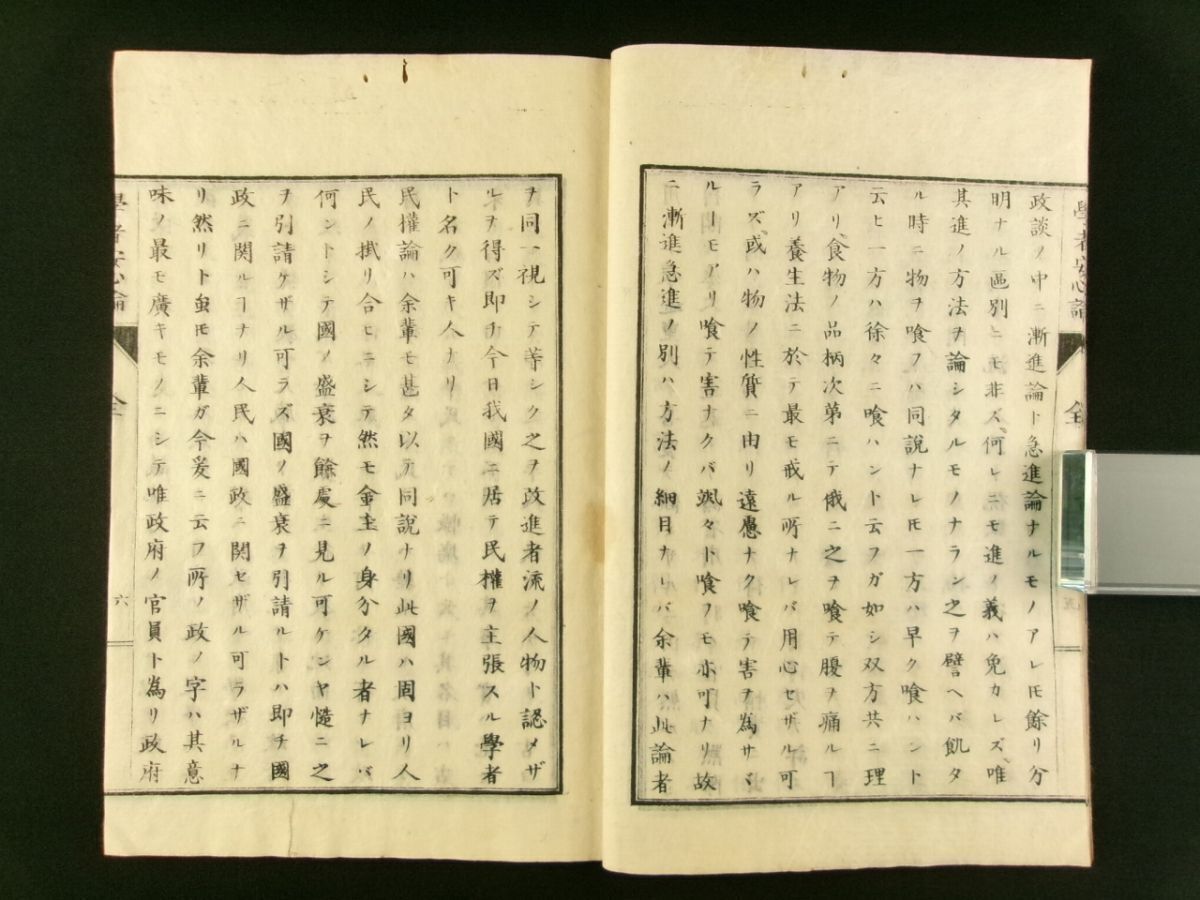 學者安心論
全
五
政談ノ中ニ漸進論ト急進論ナルモノアレ𪜈餘リ分
明ナル區別ニモ非ズ、何レニモ進ノ義ハ免カレズ、唯
其進ノ方法ヲ論シタルモノナラン之ヲ譬ヘバ飢タ
ル時ニ物ヲ喰フハ同說ナレ𪜈一方ハ早ク喰ハント
云ヒ一方ハ徐々ニ喰ハント云フガ如シ双方共ニ理
アリ、食物ノ品柄次第ニテ俄ニ之ヲ喰テ腹ヲ痛ルヿ
アリ養生法ニ於テ最モ戒ル所ナレバ用心セザル可
ラズ、或ハ物ノ性質ニ由リ遠慮ナク喰テ害ヲ為サヾ
ルヿモアリ喰テ害ナクバ颯々ト喰フモ亦可ナリ故
ニ漸進急進ノ別ハ方法ノ細目ナレバ余輩ハ此論者
ヲ同一視シテ等シク之ヲ改進者流ノ人物ト認メザ
ルヲ得ズ即チ今日我國ニ居テ民權ヲ主張スル學者
ト名ク可キ人ナリ
民權論ハ余輩モ甚タ以テ同說ナリ此國ハ固ヨリ人
民ノ掛リ合ヒニシテ然モ金主ノ身分タル者ナレバ
何ントシテ國ノ盛衰ヲ餘處ニ見ル可ケンヤ慥ニ之
ヲ引請ケザル可ラズ國ノ盛衰ヲ引請ルトハ即チ國
政ニ関ルヿナリ人民ハ國政ニ関セザル可ラザルナ
リ然リト虽𪜈余輩ガ今爰ニ云フ所ノ政ノ字ハ其意
味ノ最モ廣キモノニシテ唯政府ノ官員ト為リ政府
學者安心論
全
六